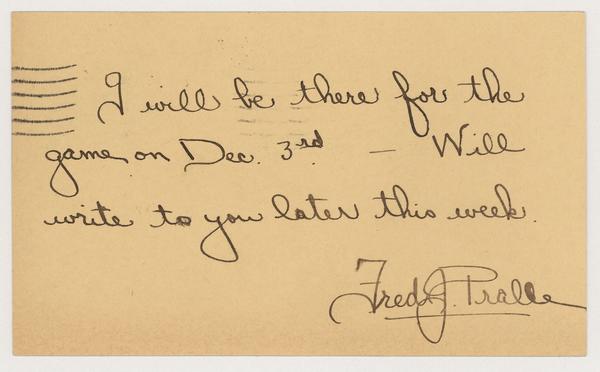 I will be there for the
game on Dec. 3rd — Will
write to you later this week.
Fred J. Pralle